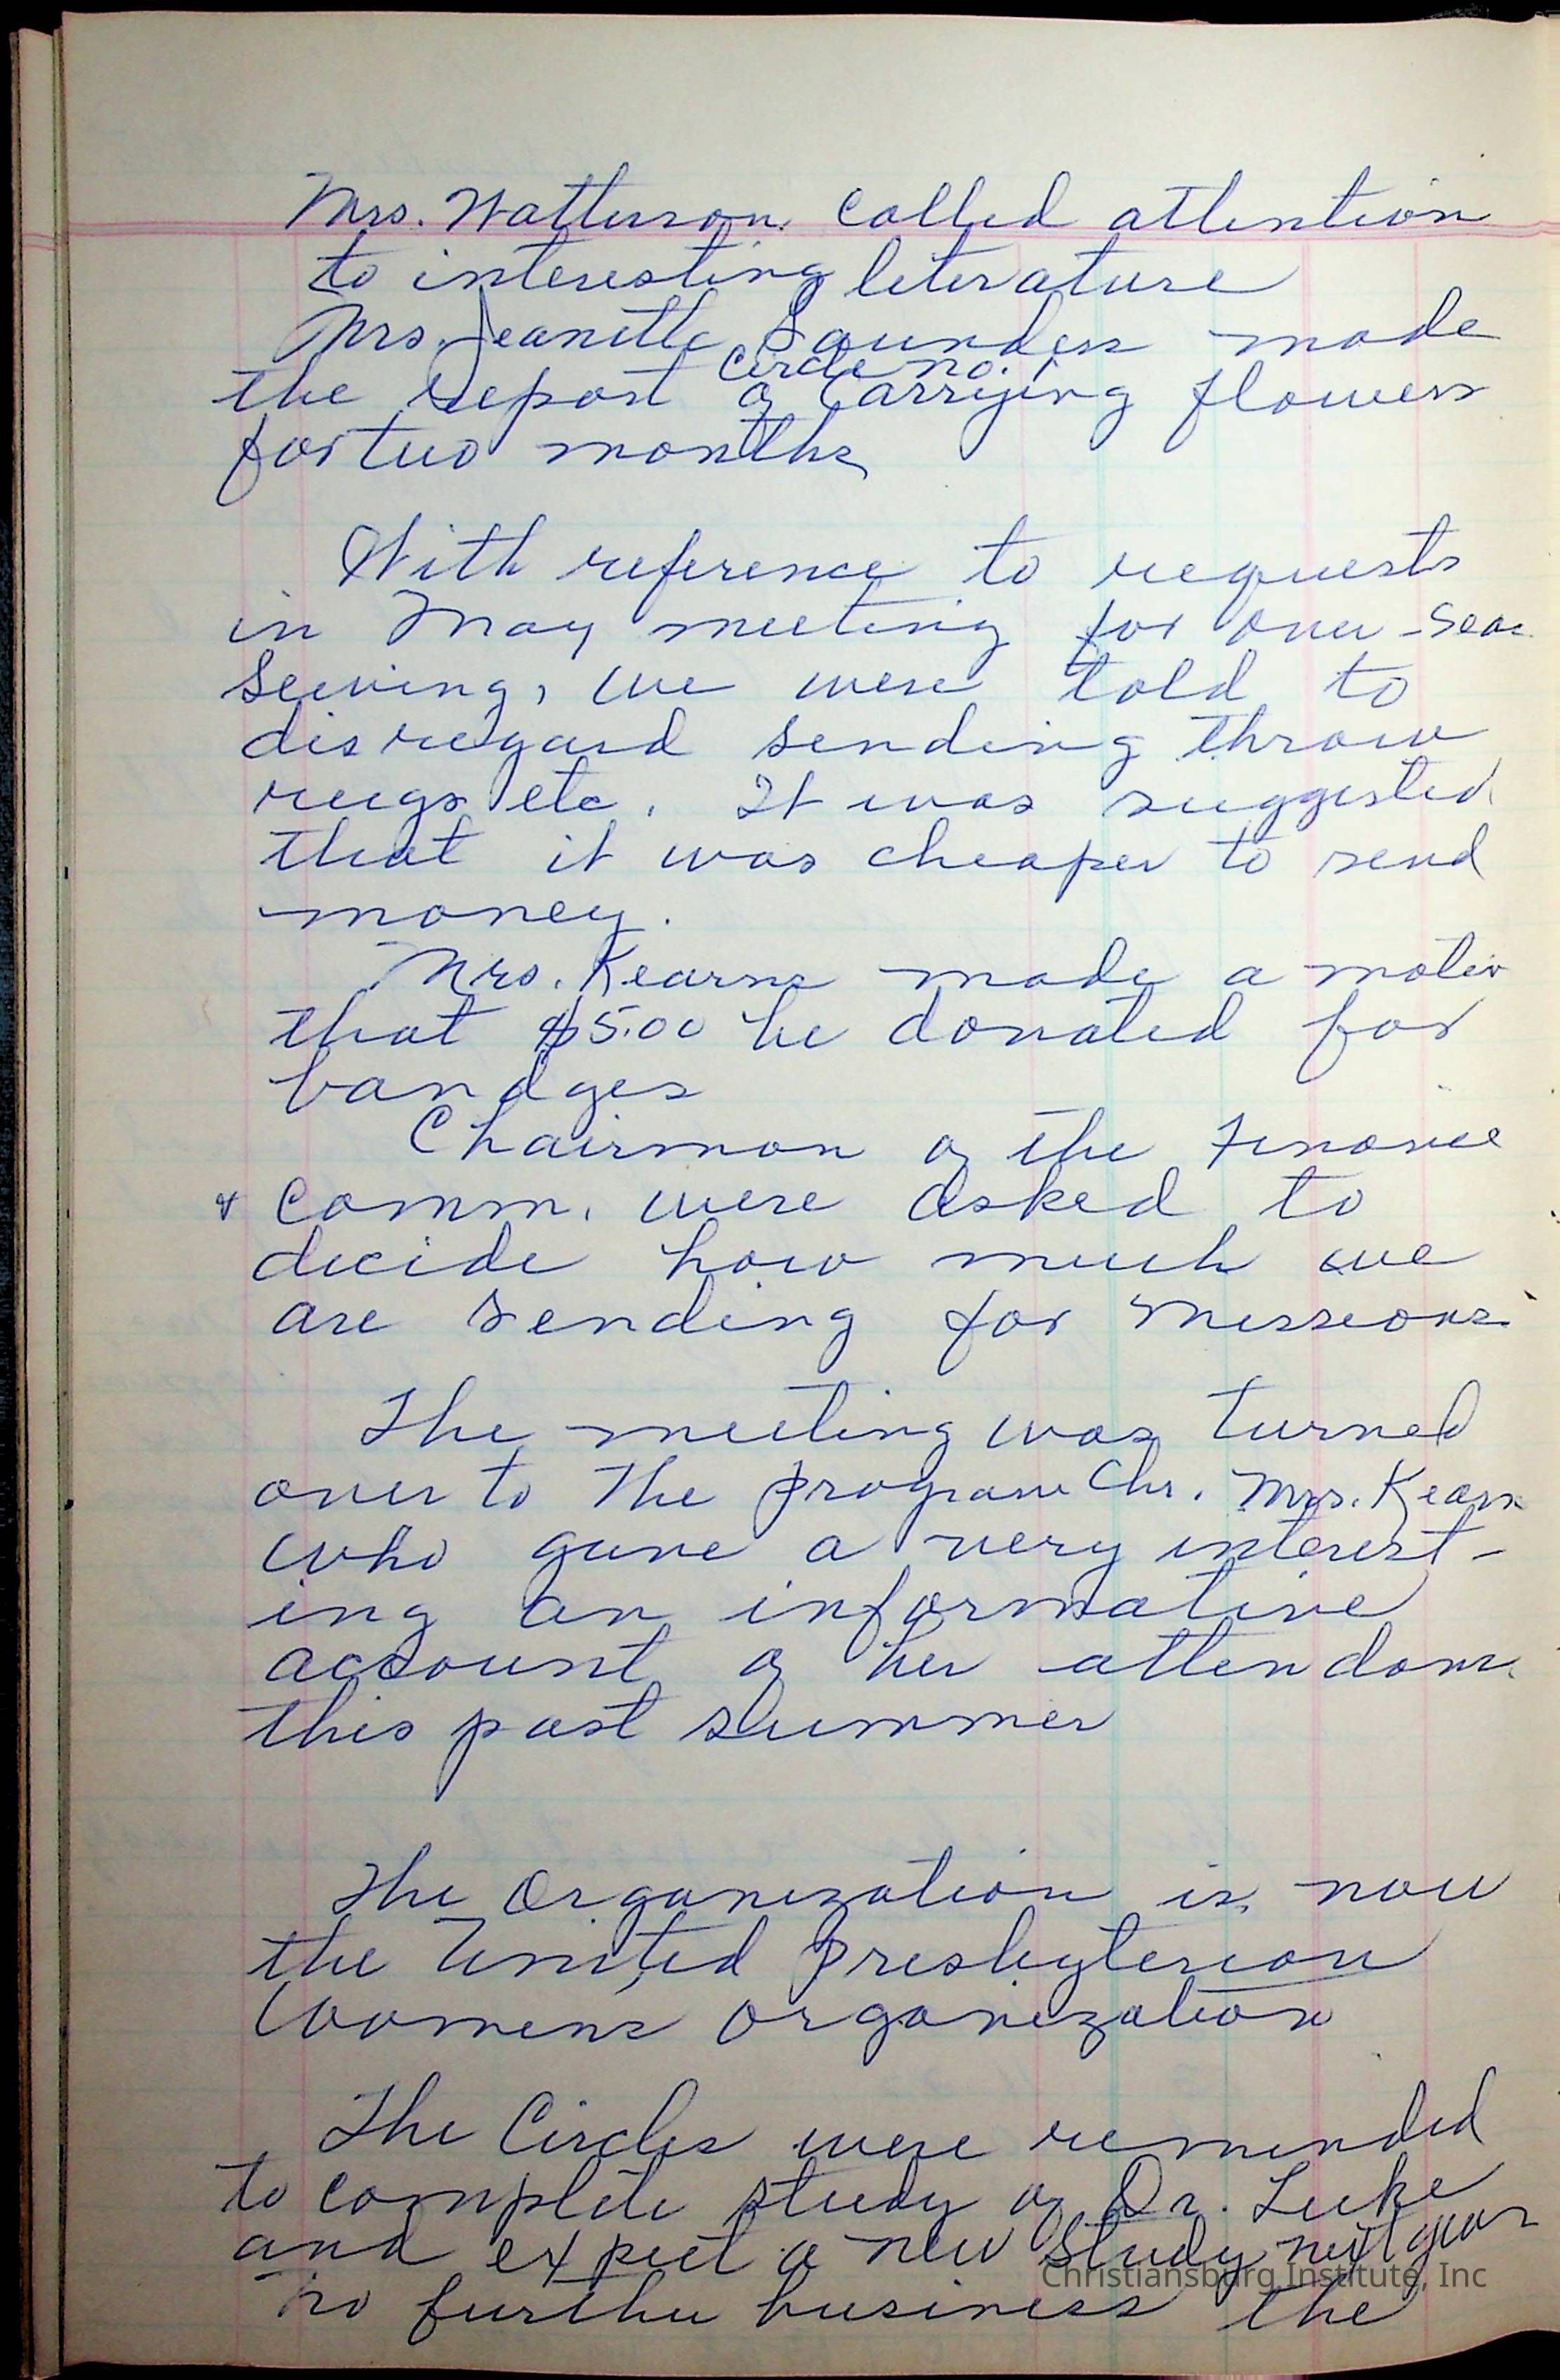 Mrs. Watterson called attention
to interesting literature
Mrs. Jeanette Saunders made
circle no. 1
the report of carrying flowers
for two months
With reference to requests
in May meeting for over-sea
sewing, we were told to
disregard sending throw
rugs etc. It was suggested
that it was cheaper to send
money.
Mrs. Kearns made a motion
that $5.00 be donated for
bandges
Chairman of the Finance
& Comm. were asked to
decide how much we
are sending for missions.
The meeting was turned
over to the program Chr. Mrs. Kearns
who gave a very interest-
ing an informative
account of her attendanc
this past summer
The Organization is now
the United Presbyterian
Women's organization
The Circles were reminded
to complete study of Dr. Luke
and expect a new study next year
no further business the
Christiansburg Institute, Inc